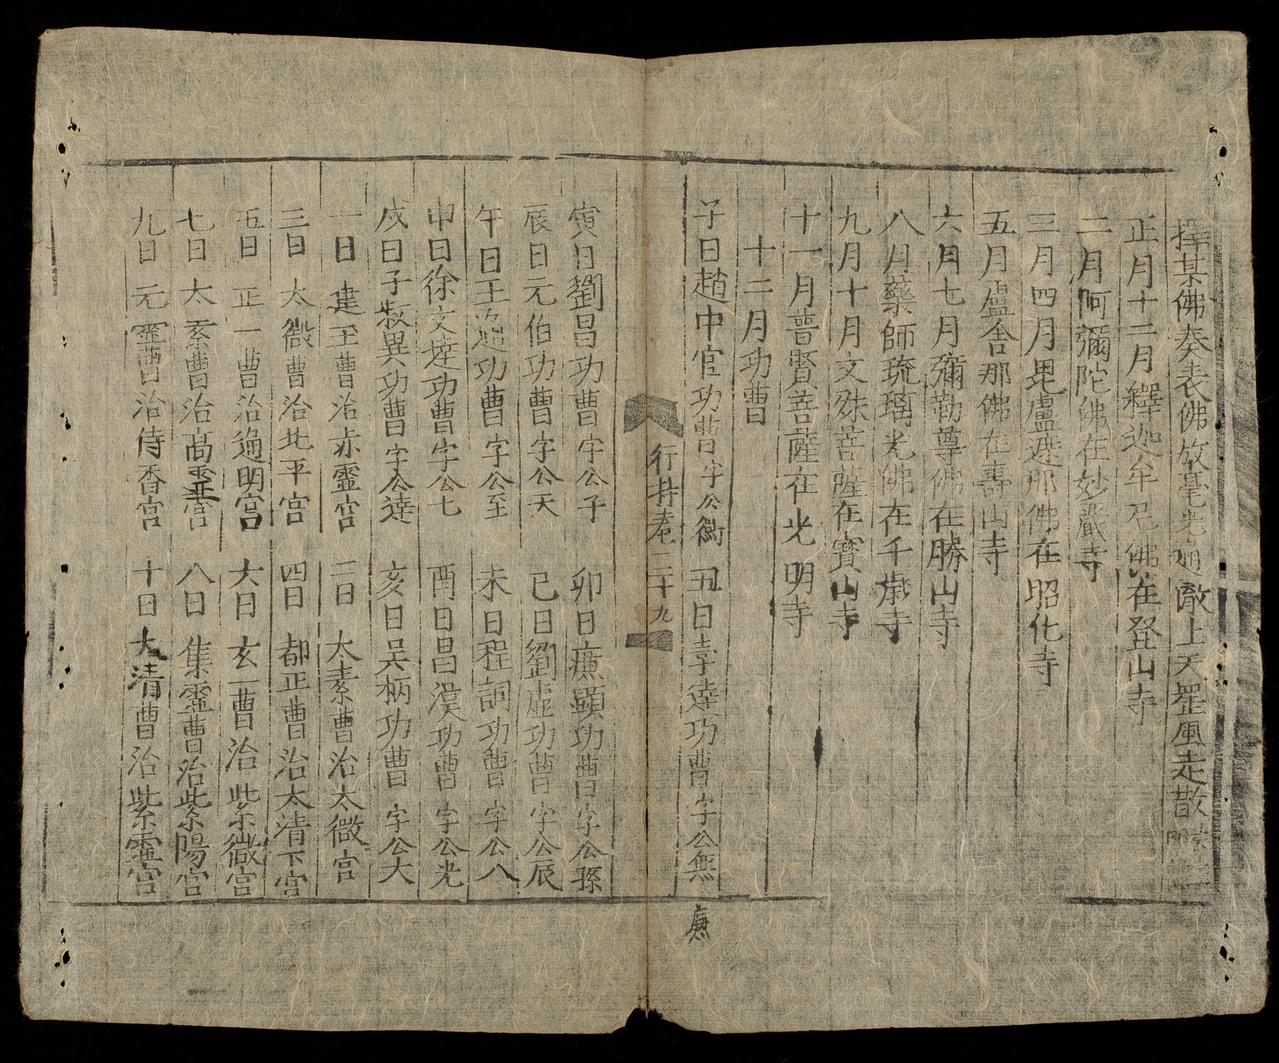 擇某佛奏表佛放毫光通徹上天罡風走散
正月十二月釋迦牟尼佛在登山寺
二月阿彌陀佛在妙嚴寺
三月四月毘盧遮那佛在昭化寺
五月盧舍那佛在壽山寺
六月七月彌勒尊佛在勝山寺
八月藥師琉璃光佛在千歲寺
九月十月文殊菩薩在寳山寺
十一月普賢菩薩在光明寺
十二月功曹
子日趙中官功曹字公衡 丑日李達功曹字公無
行持奏二十九
寅日劉昌功曹字公子 卯日㢘顕功曹字公孫
辰日元伯功曹字公天 巳日劉虛功曹字公辰
午日王通功曹字公至 未日程詞功曹字公八
申日徐文達功曹字公七 酉日昌漠功曹字公光
戌日子叔異功曹字公達 亥日吴柄功曹字公大
一日建王曹治赤靈宫 二日太素曹治太微宫
三日太微曹治北平宫 四日都正曹治太清下宫
五日正一曹治通明宫 六日玄一曹治紫微宫
七日太素曹治髙宫 八日集靈曹治紫陽宫
九日元靈曹治侍香宫 十日大清曹治紫霊宫
㢘